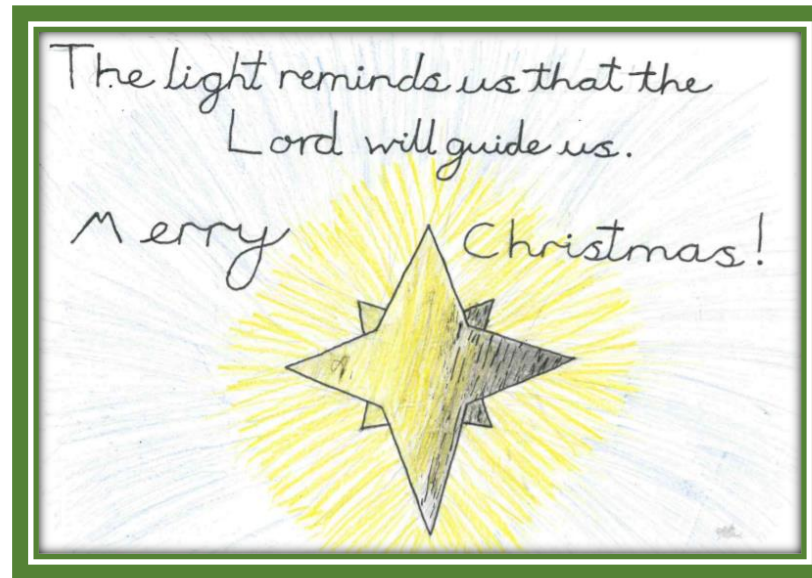 The light reminds us that the
Lord will guide us.
Merry Christmas!